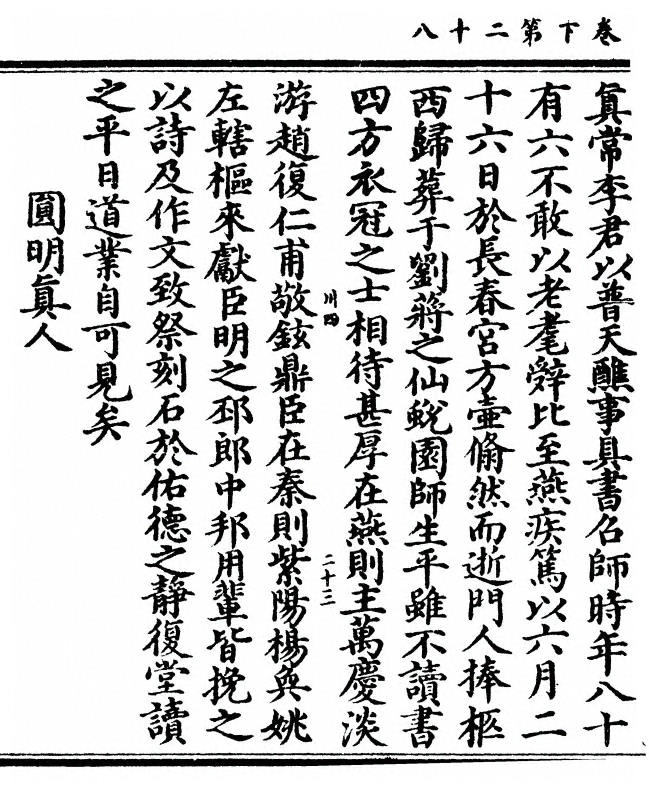 卷下第二十八
真常李君以普天醮事具書召師時年八十
有六不敢以老耄辭比至燕疾篤以六月二
十六日於長春宮方壺翛然而逝門人捧柩
西歸葬于劉蔣之仙蛻園師生平雖不讀書
四方衣冠之士相待甚厚在燕則主萬慶淡
游趙復仁甫敬鉉鼎臣在秦則紫陽楊奐姚
左轄樞來獻臣明之邳郎中邦用輩皆挽之
以詩及作文致祭刻石於佑德之靜復堂讀
之平日道業自可見矣
圓明真人
川四
二十三